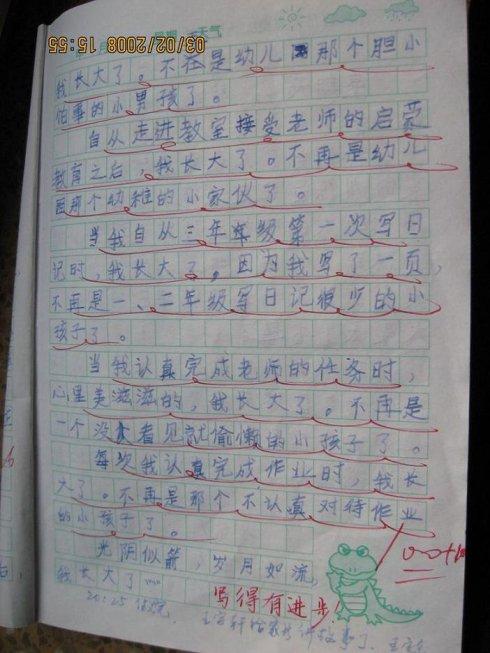 03/02/2008 15:55
天气
我长大了。不在是幼儿园那个胆小
怕事的小男孩了。
自从走进教室接受老师的启蒙
教育之后，我长大了。不再是幼儿
园那个幼稚的小家伙了。
当我自从三年年级第一次写日
记时，我长大了。因为我写了一页，
不再是一、二年级写日记很少的小
孩子了。
当我认真完成老师的任务时，
心里美滋滋的，我长大了。不再是
一个没人看见就偷懒的小孩子了。
每次我认真完成作业时，我长
大了。不再是那个不认真对待作业
的小孩子了。
光阴似箭，岁月如流，
我长大了……
写得有进步！
20:25